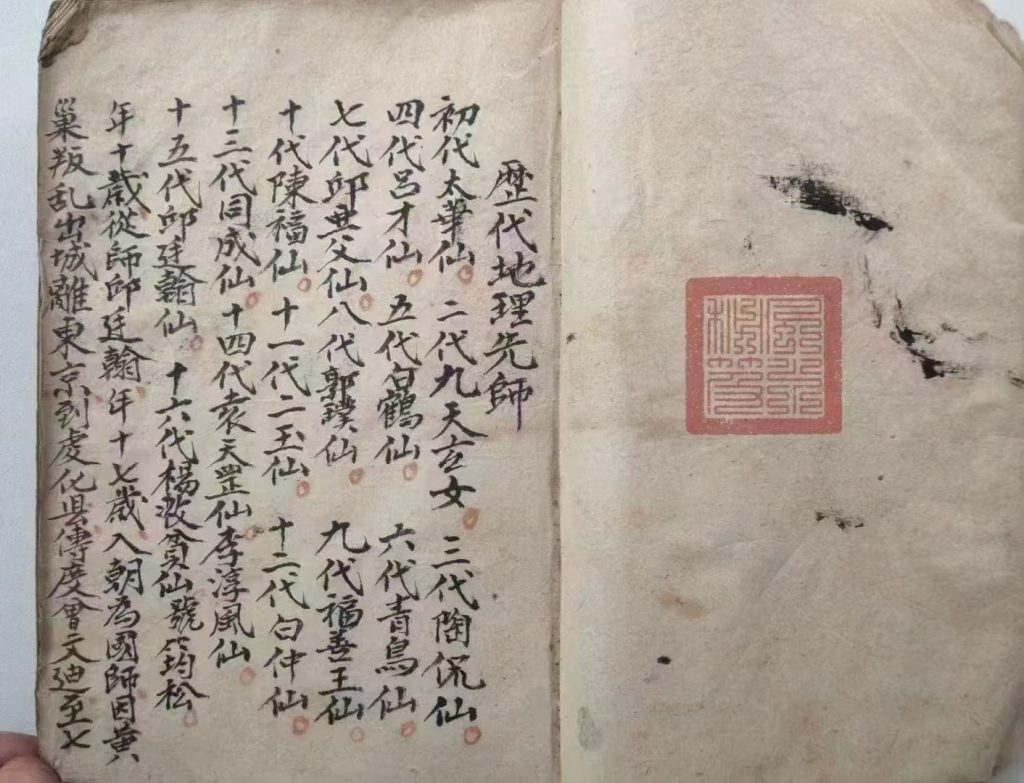 歴代地理先師
初代太華仙 二代九天玄女 三代陶侃仙
四代呂才仙 五代白鶴仙 六代青鳥仙
七代邱㒷父仙 八代郭璞仙 九代福善王仙
十代陳福仙 十一代二玉仙 十二代白仲仙
十三代同成仙 十四代袁天罡仙李淳風仙
十五代邱廷翰仙 十六代楊救貧仙號筠松
年十歲從師邱廷翰年十七歲入朝為國師因黃
巢叛乱出城離東京到處化㒷傳度曾文迪至七